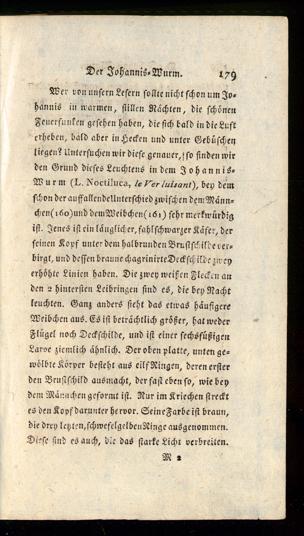 Der Johannis-Wurm. 179
Wer von unsern Lesern sollte nicht schon um Jo-
hannis in warmen, stillen Nächten, die schönen
Feuerfunken gesehen haben, die sich bald in die Luft
erheben, bald aber in Hecken und unter Gebüschen
liegen? Untersuchen wir diese genauer, so finden wir
den Grund dieses Leuchtens in dem Johannis-
Wurm (L. Noctiluca, le Ver luisant), bey dem
schon der auffallende Unterschied zwischen dem Männ-
chen (160) und dem Weibchen (161) sehr merkwürdig
ist. Jenes ist ein länglicher, fahlschwarzer Käfer, der
seinen Kopf unter dem halbrunden Brustschilde ver-
birgt, und dessen braune chagrinirte Deckschilde zwey
erhöhte Linien haben. Die zwey weißen Flecken an
den 2 hintersten Leibringen sind es, die bey Nacht
leuchten. Ganz anders sieht das etwas häufigere
Weibchen aus. Es ist beträchtlich größer, hat weder
Flügel noch Deckschilde, und ist einer sechsfüßigen
Larve ziemlich ähnlich. Der oben platte, unten ge-
wölbte Körper besteht aus eilf Ringen, deren erster
den Brustschild ausmacht, der fast eben so, wie bey
dem Männchen geformt ist. Nur im Kriechen streckt
es den Kopf darunter hervor. Seine Farbe ist braun,
die drey letzten, schwefelgelben Ringe ausgenommen.
Diese sind es auch, die das starke Licht verbreiten.
M 2